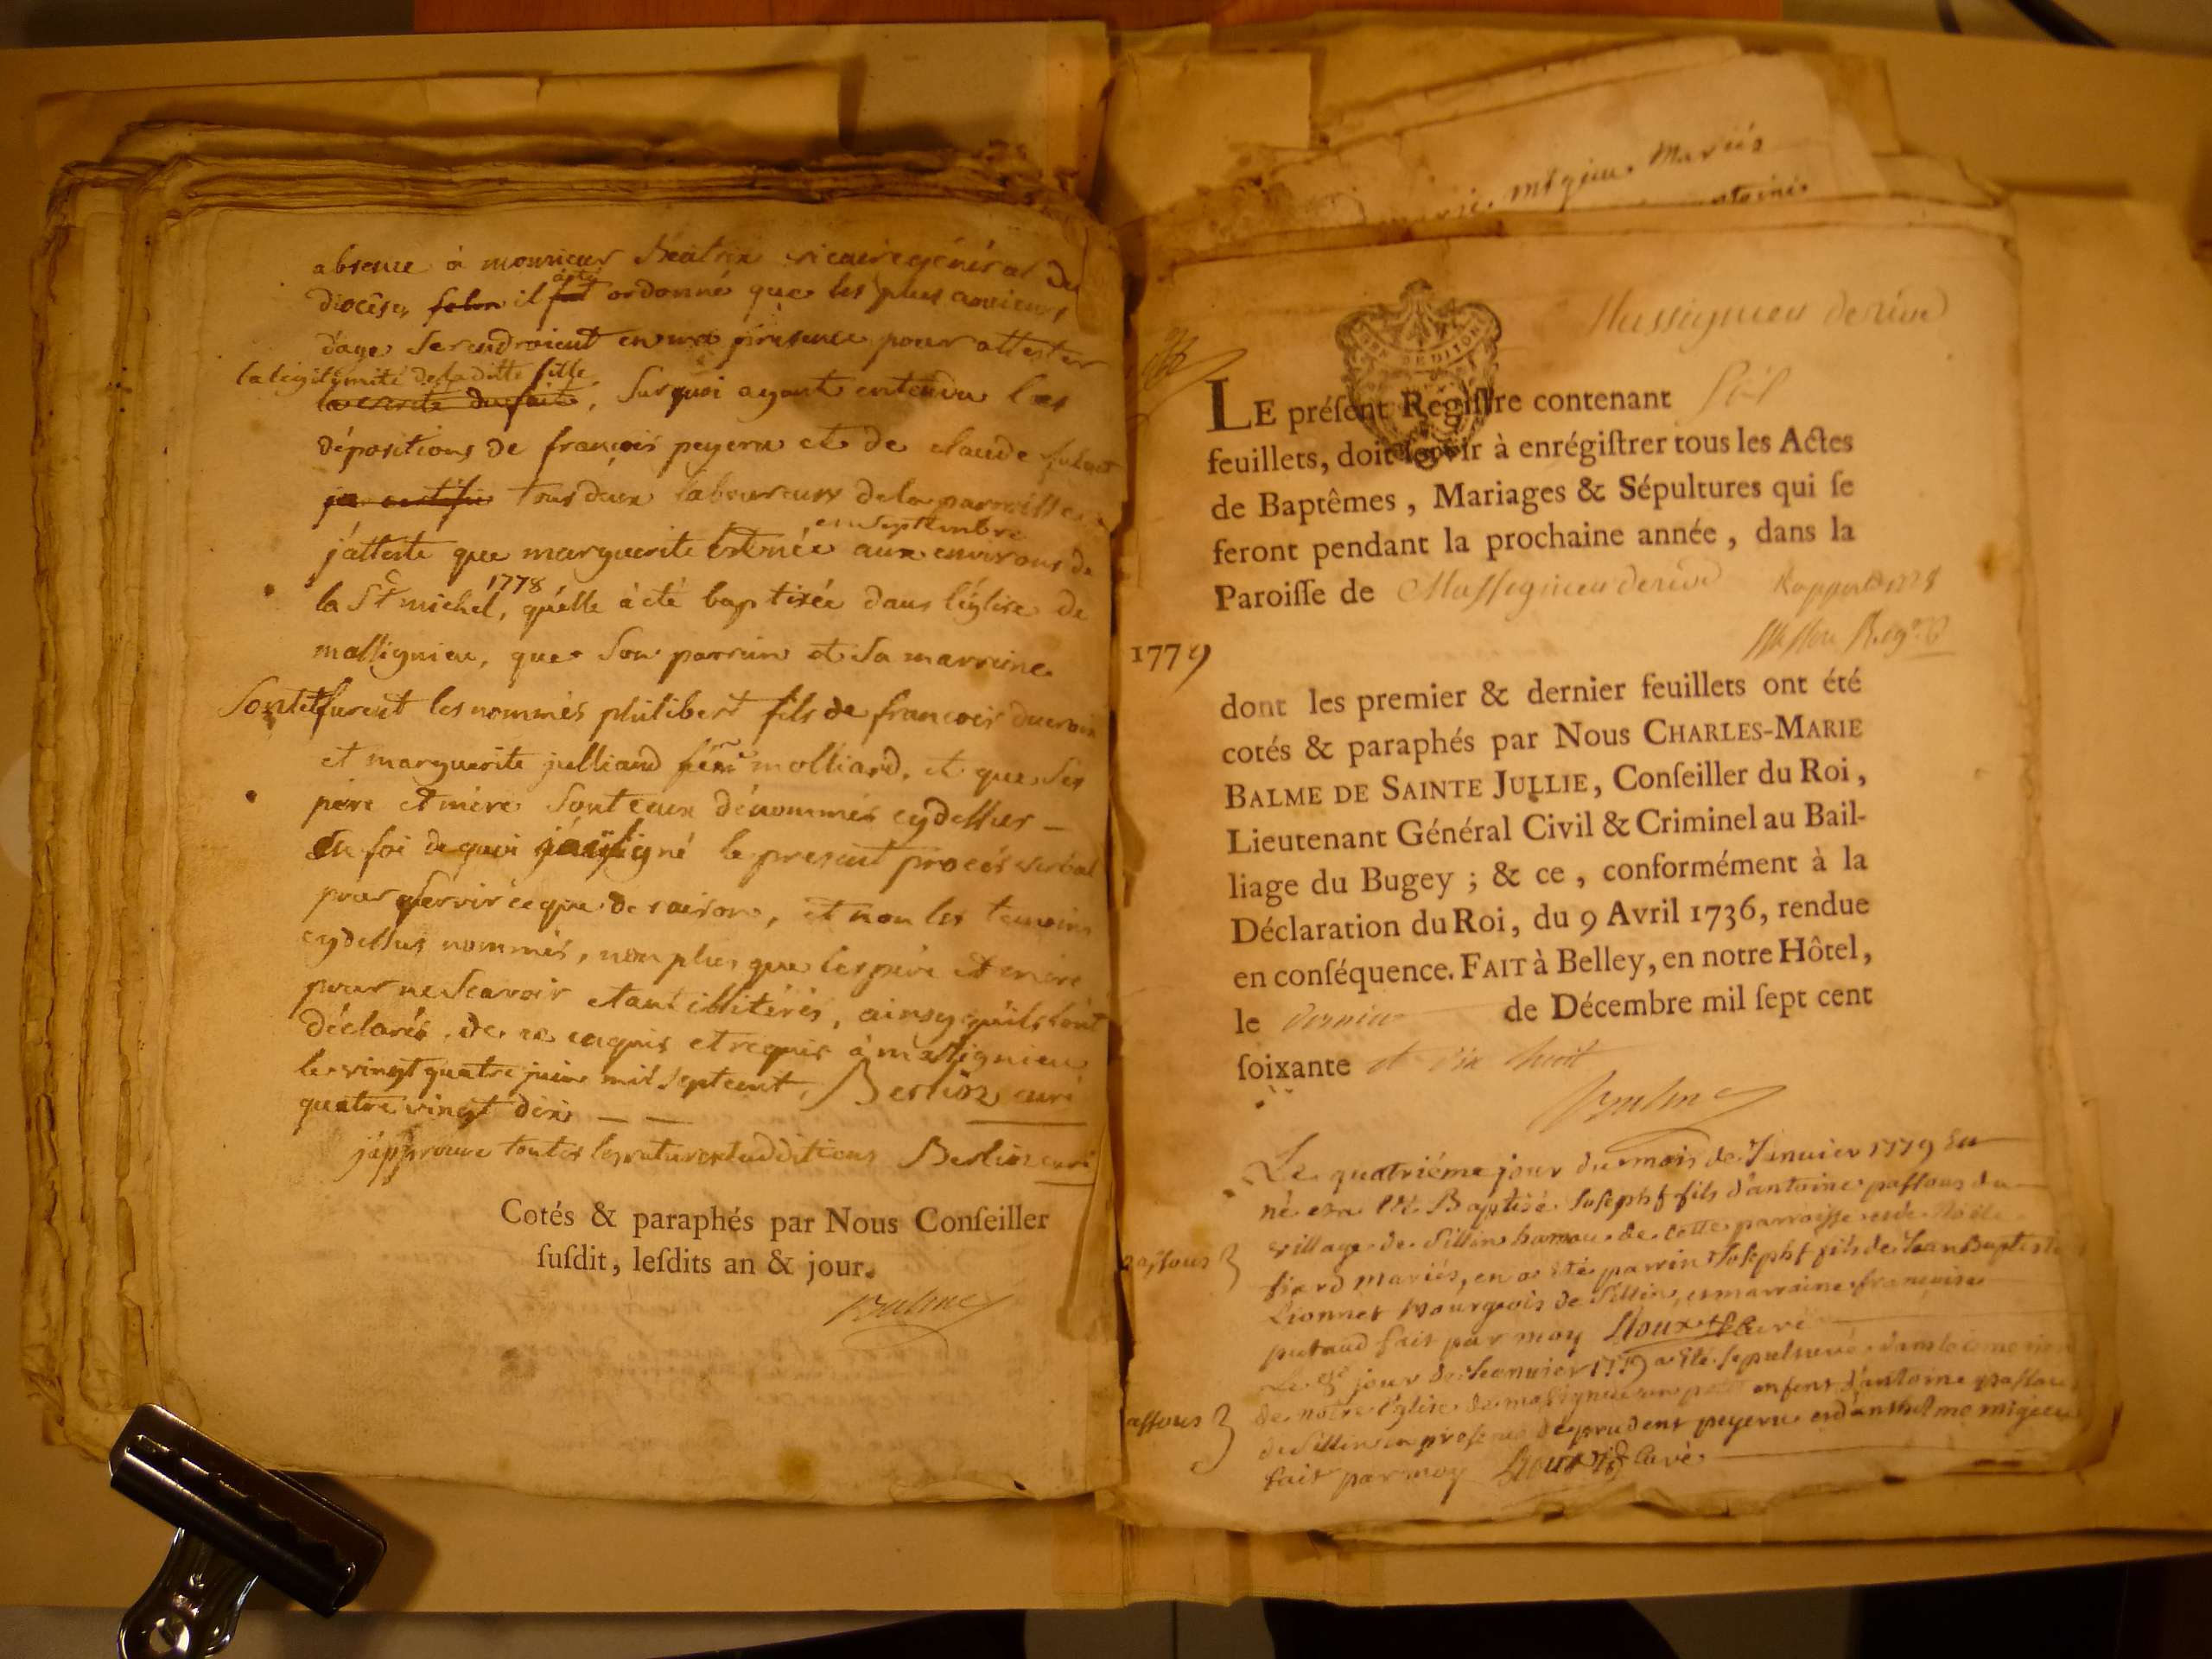 absence à monsieur Béatrix vicaire général du
diocèse, selon il fut a été ordonné que les plus anciens
d'age se rendroient en ma présence pour attester
la légitimité de la ditte fille
la verité du fait, sur quoi ayant entendu les
dépositions de françois peyern et de claude
je certifie tous deux laboureurs de la parroisse
en septembre
j'atteste que marguerite est née aux environs de
1778
la St michel, qu'elle à été baptisée dans l'église de
massignieu, que son parrain et sa marraine
sont et furent les nommés philibert fils de françois ducroin
et marguerite julliand molliard, et que ses
père et mère sont ceux dénommés cydessus —
En foi de quoi j'ay signé le present procés verbal
pour servir ce que de raison, et non les temoins
cydessus nommés, non plus que les père et mère
pour ne scavoir etant illitérés, ainsy qu'ils l'ont
déclarés de ce enquis et requis à massignieu
le vingt quatre juin mil sept cent, Berlioz curé
quatre vingt dix — —
j'approuve toutes les ratures et additions Berlioz curé
Cotés & paraphés par Nous Conſeiller
ſuſdit, leſdits an & jour.
Balme
mariés
antoine
Massignieu de rive
LE préſent Regiſtre contenant Six
feuillets, doit ſervir à enrégiſtrer tous les Actes
de Baptêmes, Mariages & Sépultures qui ſe
feront pendant la prochaine année, dans la
Paroiſſe de Massignieu de rive
1779
dont les premier & dernier feuillets ont été
cotés & paraphés par Nous CHARLES-MARIE
BALME DE SAINTE JULLIE, Conſeiller du Roi,
Lieutenant Général Civil & Criminel au Bail-
liage du Bugey ; & ce, conformément à la
Déclaration du Roi, du 9 Avril 1736, rendue
en conſéquence. FAIT à Belley, en notre Hôtel,
le dernier de Décembre mil ſept cent
ſoixante et dix huit
Balme
Le quatriéme jour du mois de Janvier 1779 Est
né et a été Baptisé Joseph fils d'antoine passous du
village de Sillin hameau de cette parroisse et de
fiard mariés, en a été parrin Joseph fils de Jean Baptiste
passous
Lionnet Bourgeois de Sillin, et marraine françoise
putoud fait par moy Roux Curé
Le jour de Jeanvier 1779 a été sepulturé dans le cimetiere
de notre Eglise de massignieu un petit enfent d'antoine passous
passous
de Sillin en presence de prudent peyern et d'anthelme migieu
fait par moy Roux Curé